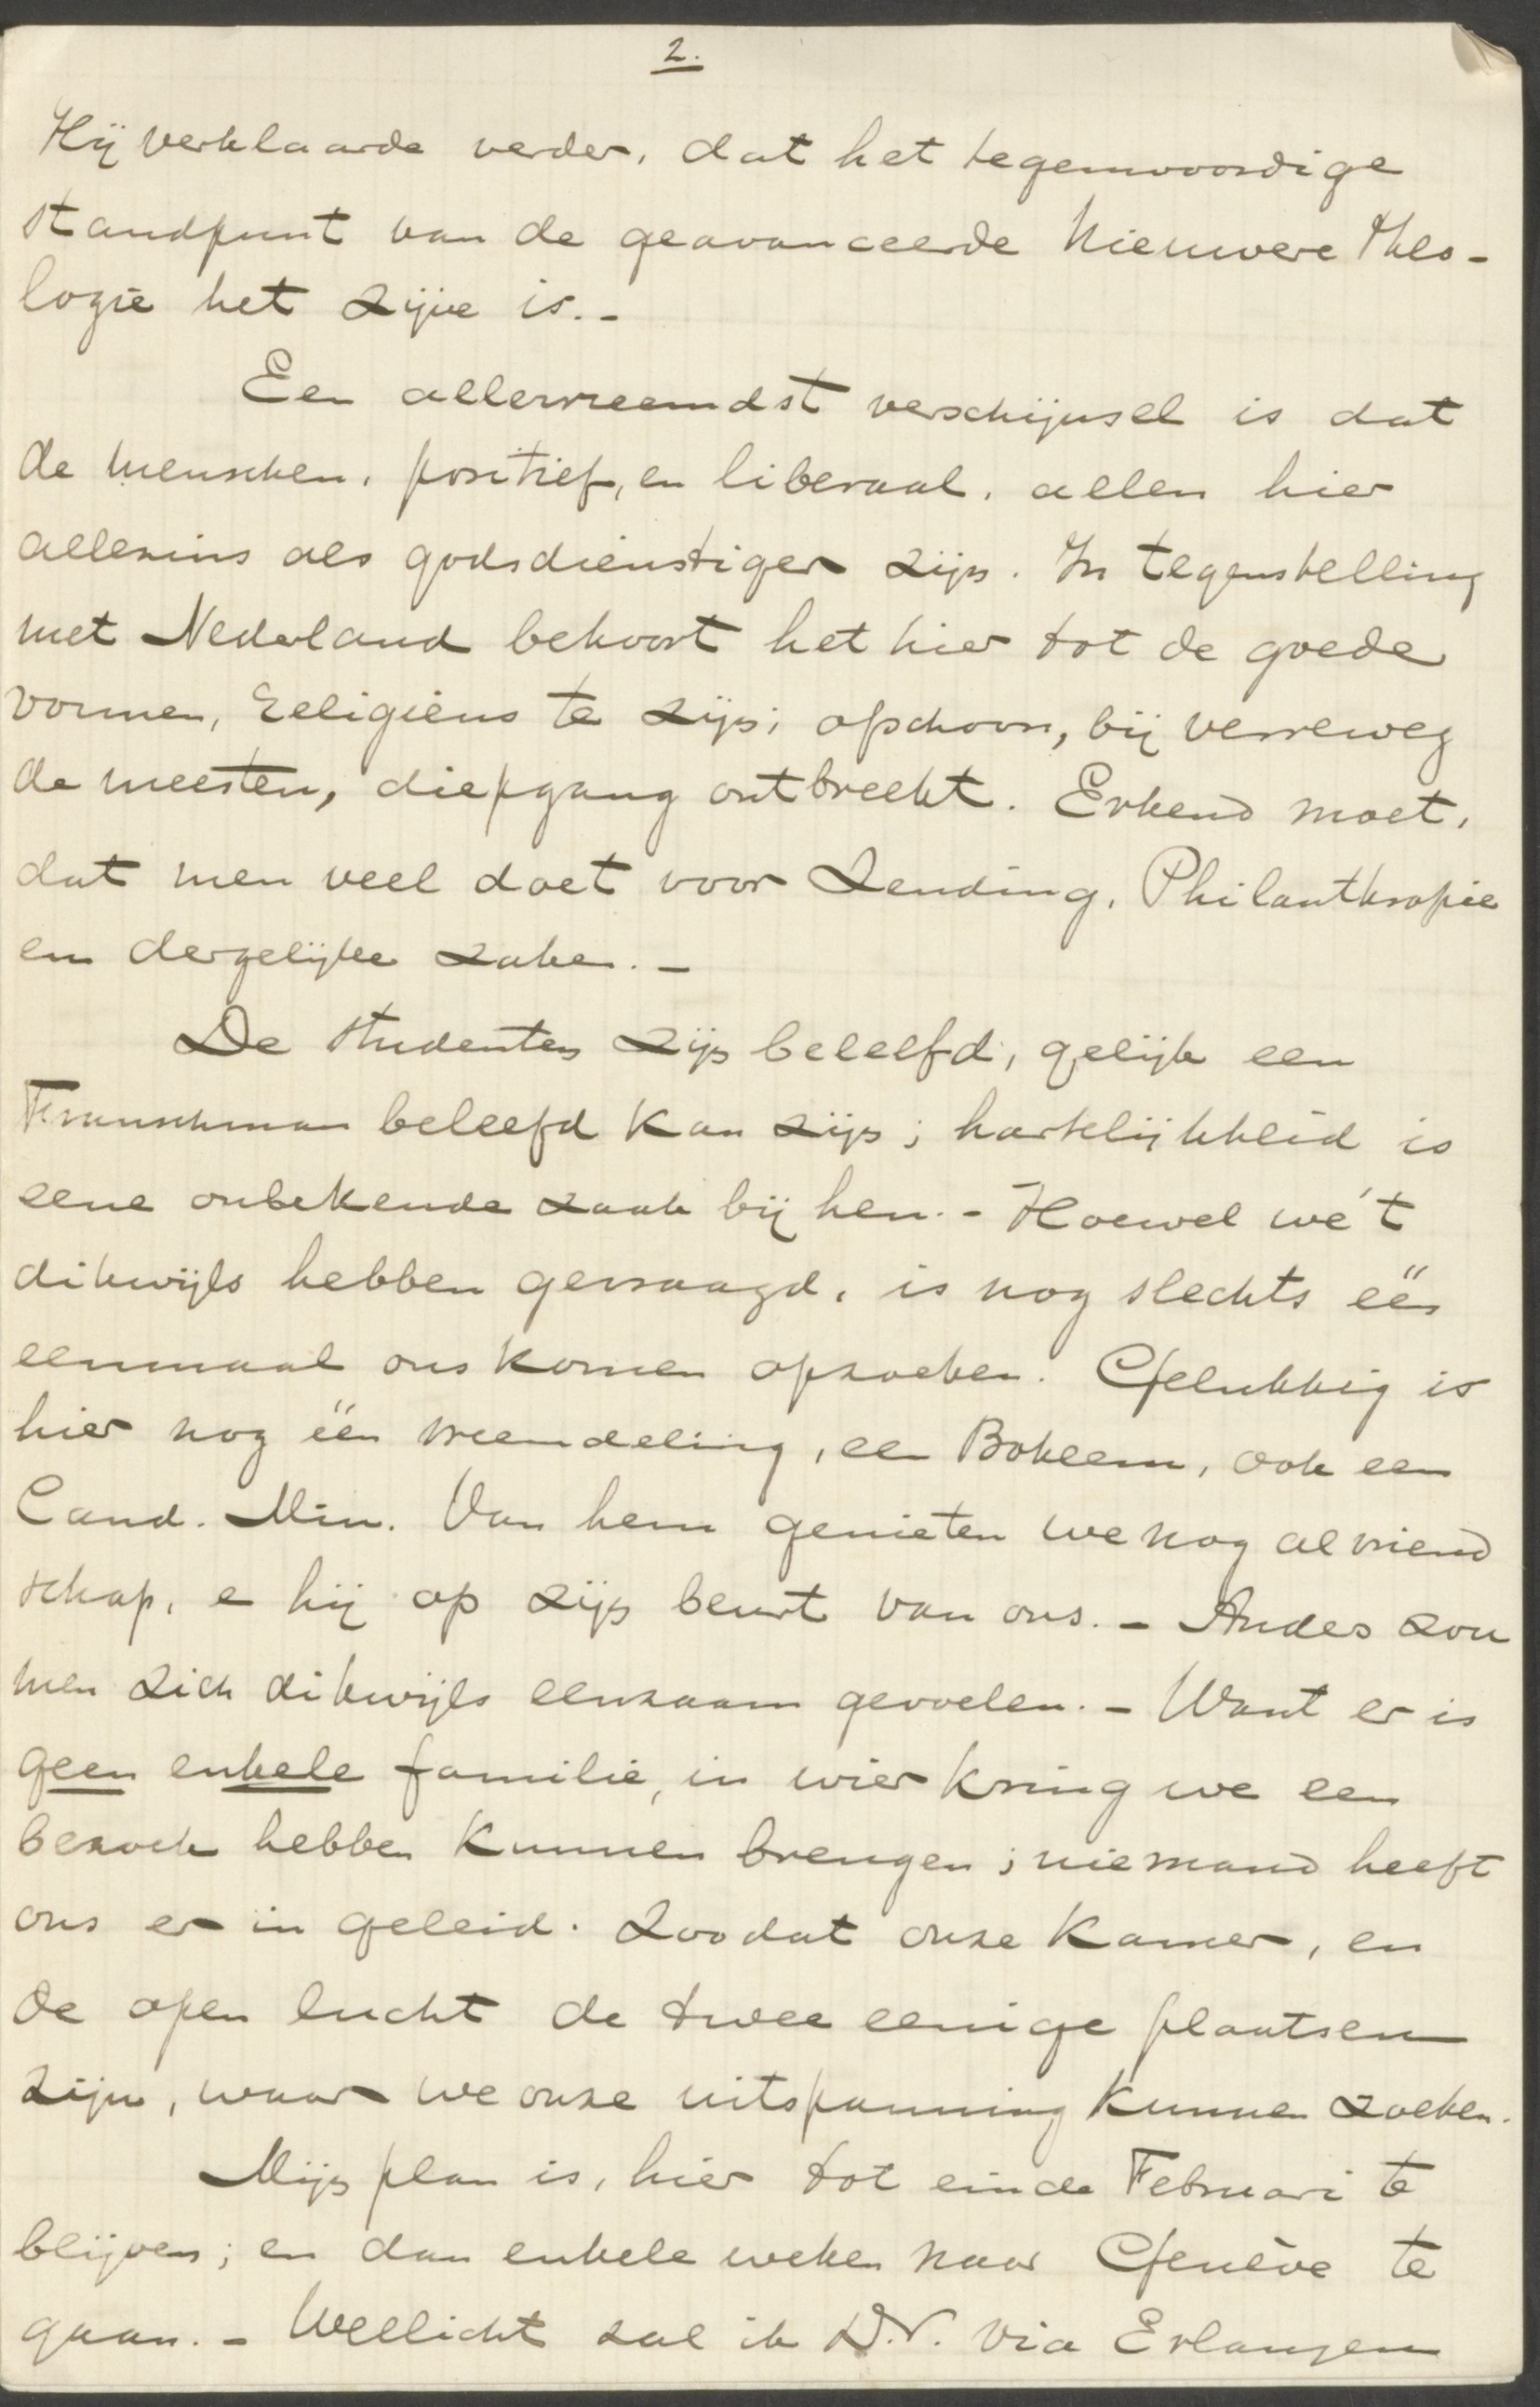 2.
Hij verklaarde verder, dat het tegenwoordige
standpunt van de geavanceerde Nieuwere Theo-
logie het zijne is. -
Een allervreemdst verschijnsel is dat
de menschen, positief, en liberaal, allen hier
allezins als godsdienstigen zijn. In tegenstelling
met Nederland behoort het hier tot de goede
vormen, religieus te zijn; ofschoon, bij verreweg
de meesten, diepgang ontbreekt. Erkend moet,
dat men veel doet voor Zending, Philanthropie
en dergelijke zaken. -
De studenten zijn beleefd, gelijk een
Franschman beleefd kan zijn; hartelijkheid is
eene onbekende zaak bij hen. - Hoewel we 't
dikwijls hebben gevraagd, is nog slechts één
eenmaal ons komen opzoeken. Gelukkig is
hier nog één vreemdeling, een Boheem, ook een
Cand. Min. Van hem genieten we nog al vriend
schap, en hij op zijn beurt van ons. - Anders zou
men zich dikwijls eenzaam gevoelen. - Want er is
geen enkele familie, in wier kring we een
bezoek hebben kunnen brengen; niemand heeft
ons er in geleid. Zoodat onze Kamer, en
de open lucht de twee eenige plaatsen
zijn, waar we onze uitspanning kunnen zoeken.
Mijn plan is, hier tot einde Februari te
blijven; en dan enkele weken naar Genève te
gaan. - Wellicht zal ik D.V. via Erlangen